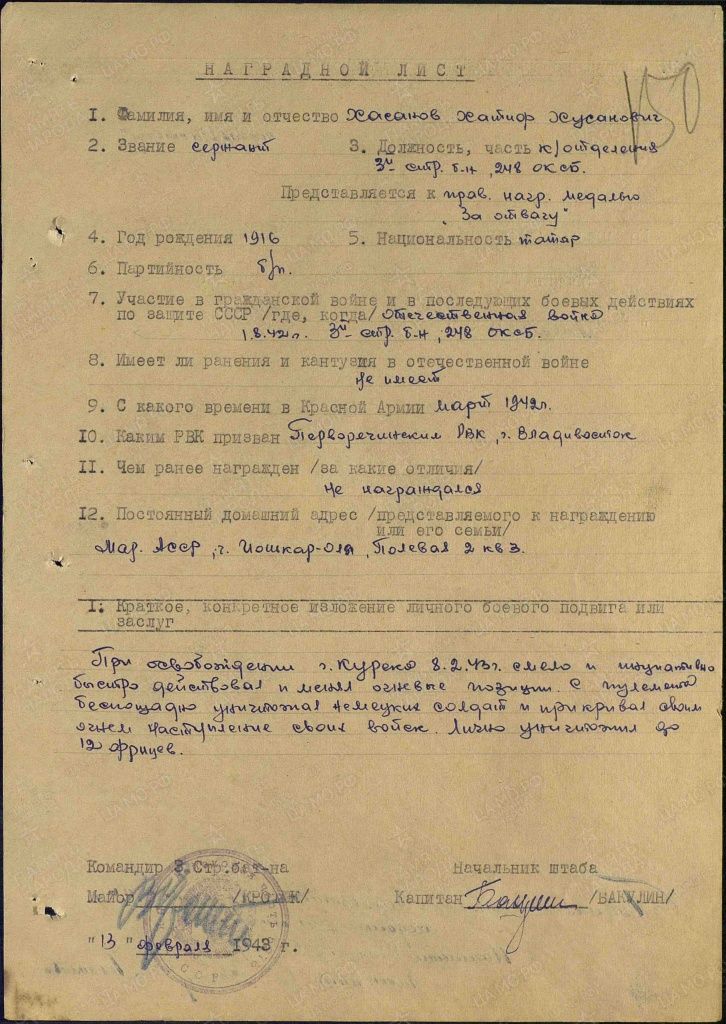 150
НАГРАДНОЙ ЛИСТ
1. Фамилия, имя и отчество Хасанов Хатиф Хусанович
2. Звание сержант 3. Должность, часть к/отделения
3й стр. б-н, 248 ОКСБ.
Представляется к прав. нагр. медалью
"За отвагу"
4. Год рождения 1916 5. Национальность татар
6. Партийность б/п.
7. Участие в гражданской войне и в последующих боевых действиях
по защите СССР /где, когда/ Отечественная война
1.8.42г. 3й стр. б-н, 248 ОКСБ.
8. Имеет ли ранения и кантузия в отечественной войне
Не имеет
9. С какого времени в Красной Армии март 1942г.
10. Каким РВК призван Первореченским РВК, г. Владивосток
11. Чем ранее награжден /за какие отличия/
Не награждался
12. Постоянный домашний адрес /представляемого к награждению
или его семьи/
Мар. АССР, г. Иошкар-Ола, Полевая 2 кв 3.
I: Краткое, конкретное изложение личного боевого подвига или
заслуг
При освобождении г. Курска 8.2.43г. смело и инциативно
быстро действовал и менял огневые позиции. С пулемета
беспощадно уничтожал немецких солдат и прикривал своим
огнем наступление своих войск. Лично уничтожил до
12 фрицев.
Командир 3 Стр.бат-на Начальник штаба
Майор /КРОЛИК/ Капитан Бакулин /БАКУЛИН/
"13" февраля 1943 г.